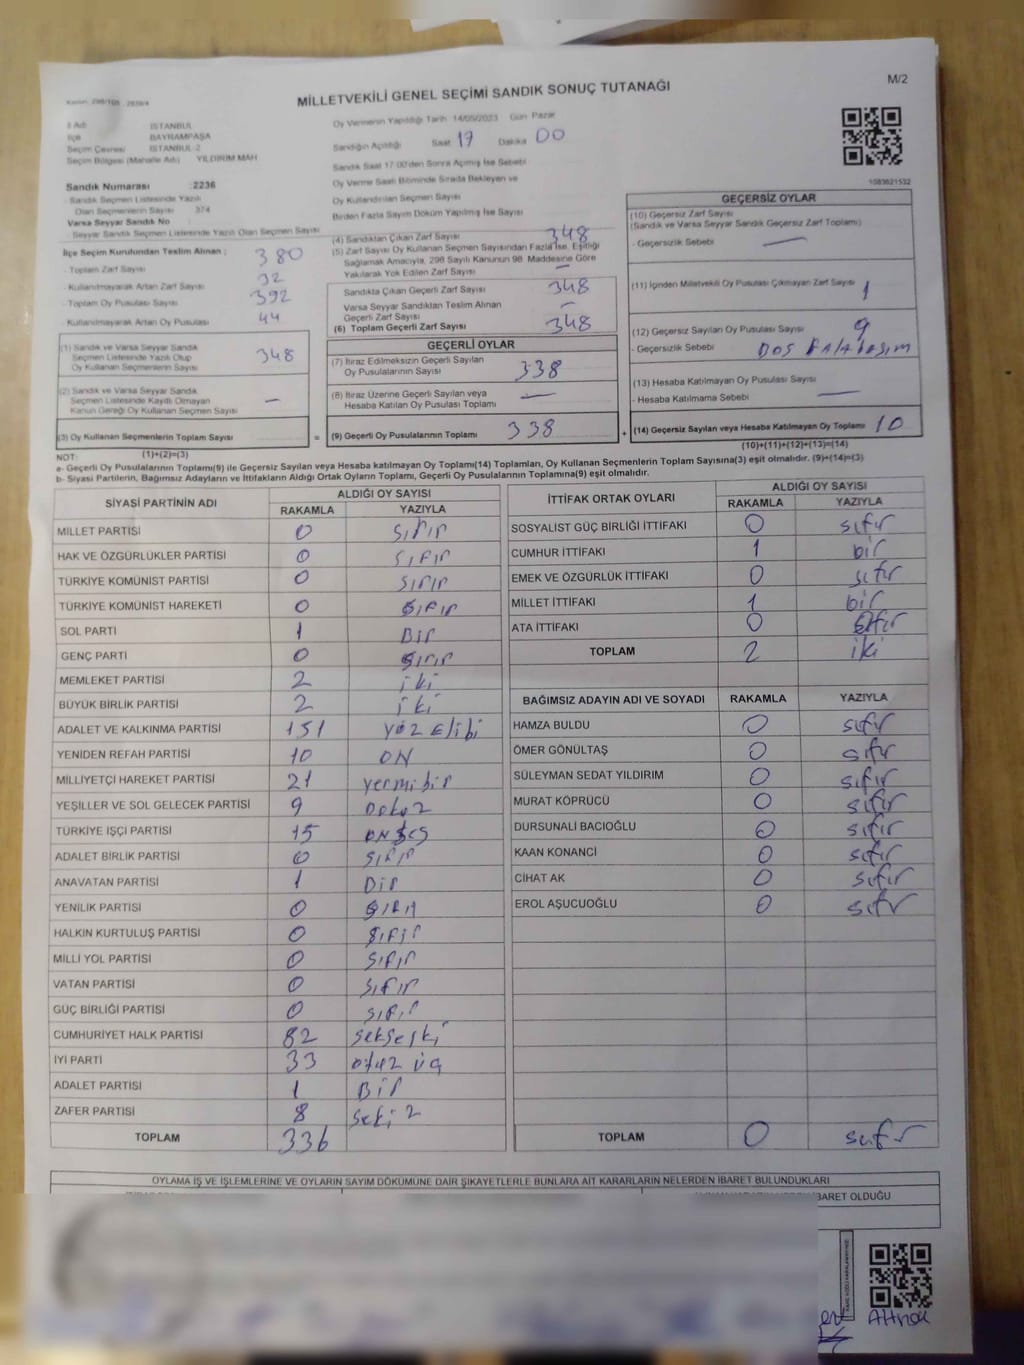 M/2
MİLLETVEKİLİ GENEL SEÇİMİ SANDIK SONUÇ TUTANAĞI
İl Adı : İSTANBUL
İlçe : BAYRAMPAŞA
Seçim Çevresi : İSTANBUL 2
Seçim Bölgesi (Mahalle Adı) : YILDIRIM MAH
Sandık Numarası : 2236
- Sandık Seçmen Listesinde Yazılı
Olan Seçmenlerin Sayısı : 374
Varsa Seyyar Sandık No :
- Seyyar Sandık Seçmen Listesinde Yazılı Olan Seçmen Sayısı
Oy Vermenin Yapıldığı Tarih 14/05/2023 Gün Pazar
Sandığın Açıldığı Saat 17 Dakika 00
Sandık Saat 17.00'den Sonra Açılmış İse Sebebi
Oy Verme Saati Bitiminde Sırada Bekleyen ve
Oy Kullandırılan Seçmen Sayısı
Birden Fazla Sayım Döküm Yapılmış İse Sayısı
1083621532
İlçe Seçim Kurulundan Teslim Alınan ;
- Toplam Zarf Sayısı 380
- Kullanılmayarak Artan Zarf Sayısı 32
- Toplam Oy Pusulası Sayısı 392
- Kullanılmayarak Artan Oy Pusulası 44
(1) Sandık ve Varsa Seyyar Sandık
Seçmen Listesinde Yazılı Olup
Oy Kullanan Seçmenlerin Sayısı 348
(2) Sandık ve Varsa Seyyar Sandık
Seçmen Listesinde Kaydı Olmayan
Kanun Gereği Oy Kullanan Seçmen Sayısı —
(3) Oy Kullanan Seçmenlerin Toplam Sayısı =
(4) Sandıktan Çıkan Zarf Sayısı 348
(5) Zarf Sayısı Oy Kullanan Seçmen Sayısından Fazla İse, Eşitliği
Sağlamak Amacıyla, 298 Sayılı Kanunun 98. Maddesine Göre
Yakılarak Yok Edilen Zarf Sayısı —
Sandıkta Çıkan Geçerli Zarf Sayısı 348
Varsa Seyyar Sandıktan Teslim Alınan
Geçerli Zarf Sayısı —
(6) Toplam Geçerli Zarf Sayısı 348
GEÇERLİ OYLAR
(7) İtiraz Edilmeksizin Geçerli Sayılan
Oy Pusulalarının Sayısı 338
(8) İtiraz Üzerine Geçerli Sayılan veya
Hesaba Katılan Oy Pusulası Toplamı —
(9) Geçerli Oy Pusulalarının Toplamı 338 +
GEÇERSİZ OYLAR
(10) Geçersiz Zarf Sayısı
(Sandık ve Varsa Seyyar Sandık Geçersiz Zarf Toplamı)
- Geçersizlik Sebebi —
(11) İçinden Milletvekili Oy Pusulası Çıkmayan Zarf Sayısı 1
(12) Geçersiz Sayılan Oy Pusulası Sayısı 9
- Geçersizlik Sebebi
(13) Hesaba Katılmayan Oy Pusulası Sayısı
- Hesaba Katılmama Sebebi —
(14) Geçersiz Sayılan veya Hesaba Katılmayan Oy Toplamı 10
NOT: (1)+(2)=(3) (10)+(11)+(12)+(13)=(14)
a- Geçerli Oy Pusulalarının Toplamı(9) ile Geçersiz Sayılan veya Hesaba katılmayan Oy Toplamı(14) Toplamları, Oy Kullanan Seçmenlerin Toplam Sayısına(3) eşit olmalıdır. (9)+(14)=(3)
b- Siyasi Partilerin, Bağımsız Adayların ve İttifakların Aldığı Ortak Oyların Toplamı, Geçerli Oy Pusulalarının Toplamına(9) eşit olmalıdır.
SİYASİ PARTİNİN ADI ALDIĞI OY SAYISI
RAKAMLA YAZIYLA
MİLLET PARTİSİ 0 Sıfır
HAK VE ÖZGÜRLÜKLER PARTİSİ 0 Sıfır
TÜRKİYE KOMÜNİST PARTİSİ 0 Sıfır
TÜRKİYE KOMÜNİST HAREKETİ 0 Sıfır
SOL PARTİ 1 Bir
GENÇ PARTİ 0 Sıfır
MEMLEKET PARTİSİ 2 iki
BÜYÜK BİRLİK PARTİSİ 2 iki
ADALET VE KALKINMA PARTİSİ 151 yüz Elibi
YENİDEN REFAH PARTİSİ 10 ON
MİLLİYETÇİ HAREKET PARTİSİ 21 yermibir
YEŞİLLER VE SOL GELECEK PARTİSİ 9 Dokuz
TÜRKİYE İŞÇİ PARTİSİ 15
ADALET BİRLİK PARTİSİ 0 Sıfır
ANAVATAN PARTİSİ 1 Bir
YENİLİK PARTİSİ 0 Sıfır
HALKIN KURTULUŞ PARTİSİ 0 Sıfır
MİLLİ YOL PARTİSİ 0 Sıfır
VATAN PARTİSİ 0 Sıfır
GÜÇ BİRLİĞİ PARTİSİ 0 Sıfır
CUMHURİYET HALK PARTİSİ 82 Sekseiki
İYİ PARTİ 33 otuz üç
ADALET PARTİSİ 1 Bir
ZAFER PARTİSİ 8 Sekiz
TOPLAM 336
İTTİFAK ORTAK OYLARI ALDIĞI OY SAYISI
RAKAMLA YAZIYLA
SOSYALİST GÜÇ BİRLİĞİ İTTİFAKI 0 sıfır
CUMHUR İTTİFAKI 1 bir
EMEK VE ÖZGÜRLÜK İTTİFAKI 0 sıfır
MİLLET İTTİFAKI 1 bir
ATA İTTİFAKI 0 sıfır
TOPLAM 2 iki
BAĞIMSIZ ADAYIN ADI VE SOYADI RAKAMLA YAZIYLA
HAMZA BULDU 0 sıfır
ÖMER GÖNÜLTAŞ 0 sıfır
SÜLEYMAN SEDAT YILDIRIM 0 sıfır
MURAT KÖPRÜCÜ 0 sıfır
DURSUNALİ BACIOĞLU 0 sıfır
KAAN KONANCİ 0 sıfır
CİHAT AK 0 sıfır
EROL AŞUCUOĞLU 0 sıfır
TOPLAM 0 sıfır
OYLAMA İŞ VE İŞLEMLERİNE VE OYLARIN SAYIM DÖKÜMÜNE DAİR ŞİKAYETLERLE BUNLARA AİT KARARLARIN NELERDEN İBARET BULUNDUKLARI
İBARET OLDUĞU